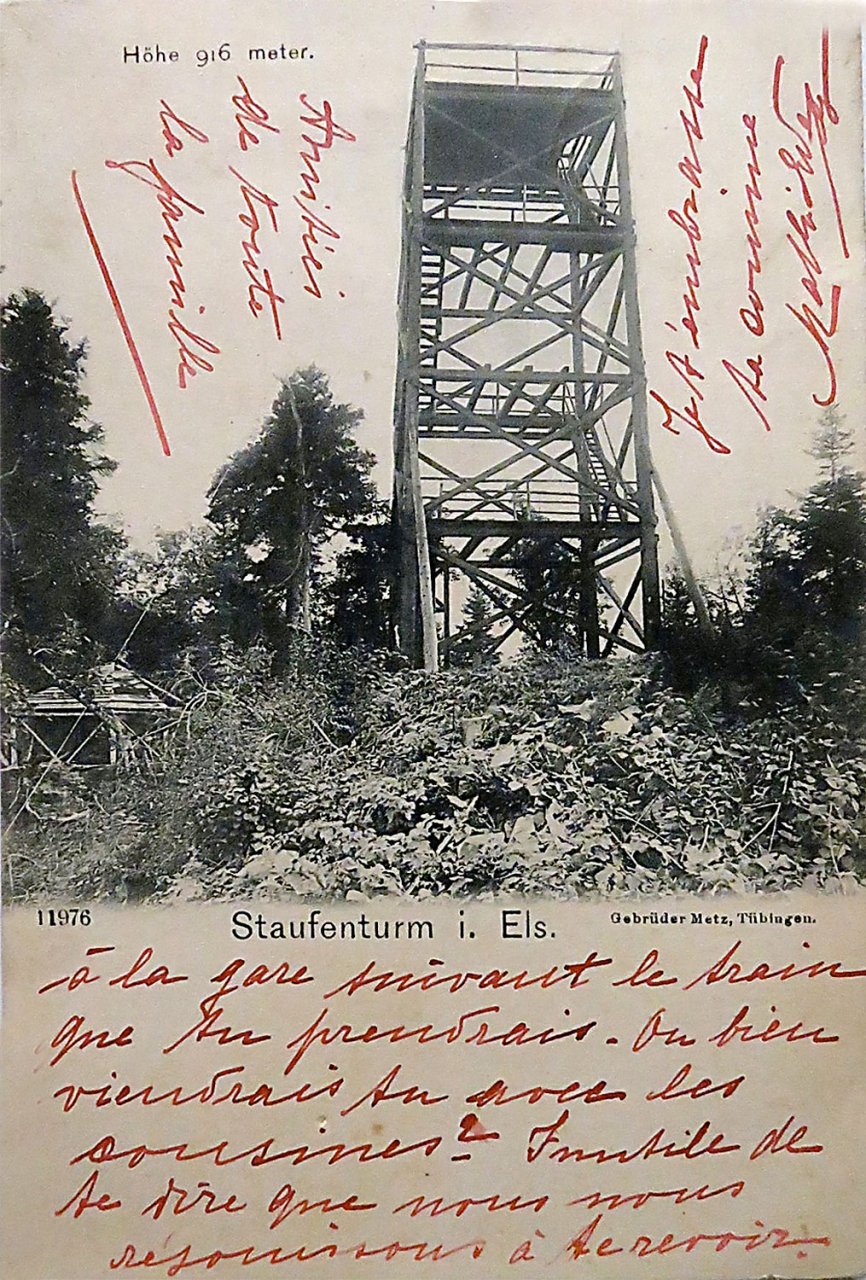 Höhe 916 meter.
Amitiés
de toute
la famille
Je t'embrasse
ta cousine
11976
Staufenturm i. Els.
Gebrüder Metz, Tübingen.
à la gare suivant le train
que tu prendrais. Ou bien
viendrais tu avec les
cousines? Inutile de
te dire que nous nous
réjouissons à te revoir.